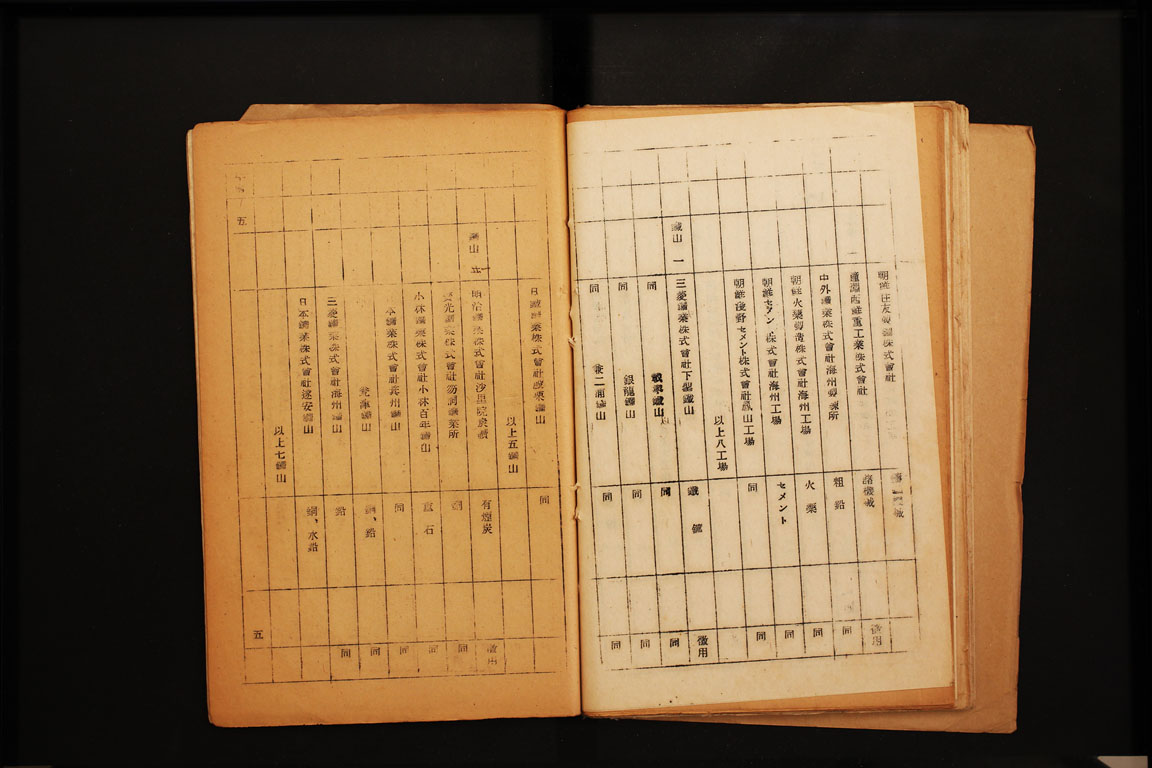 朝鮮住友製鋼株式會社
鐘淵西鮮重工業株式會社 諸機械 徵用
中外鑛業株式會社海州製錬所 粗鉛 同
朝鮮火藥製造株式會社海州工場 火藥 同
朝鮮セメント株式會社海州工場 セメント 同
朝鮮淺野セメント株式會社鳳山工場 同 同
以上八工場
鐵山 一 三菱鑛業株式會社下聖鐵山 鐵鑛 徵用
同 載寧鐵山 同 同
同 銀龍鐵山 同 同
同 兼二浦鐵山 同 同
日鐵鑛業株式會社殷栗鐵山 同
以上五鐵山
鑛山 明治鑛業株式會社沙里院炭鑛 有煙炭 徵用
鑛業株式會社笏洞鑛業所 同
小林鑛業株式會社小林百年鑛山 重石 同
鑛業株式會社 鑛山 同 同
鑛山 鉛 同
三菱鑛業株式會社海州鑛山 鉛 同
日本鑛業株式會社遂安鑛山 水鉛
以上七鑛山
五
五